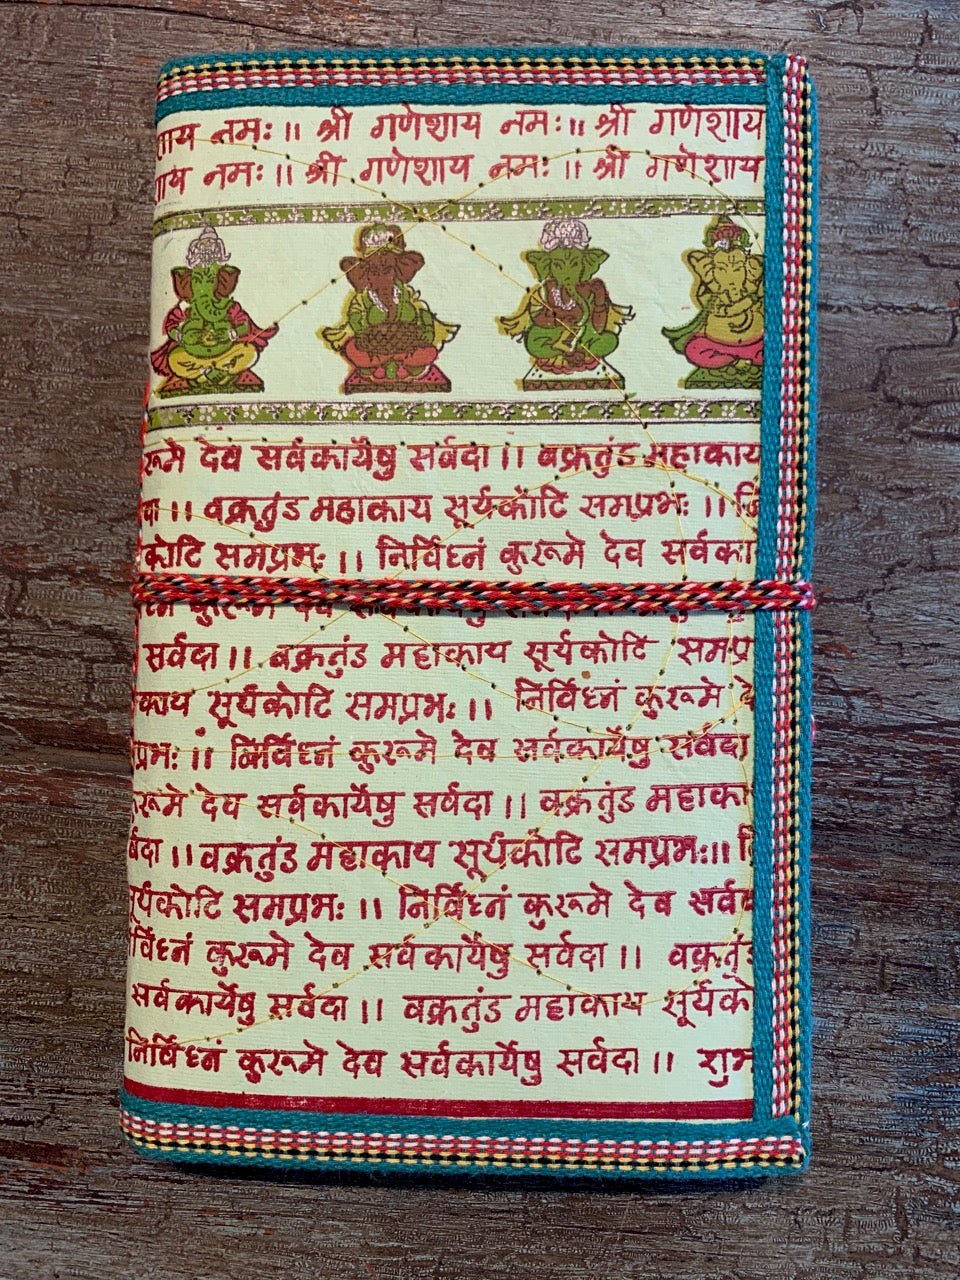 णाय नमः ॥ श्री गणेशाय नमः ॥ श्री गणेशाय
णाय नमः ॥ श्री गणेशाय नमः ॥ श्री गणेशाय
रूमे देव सर्वकार्येषु सर्वदा ॥ वक्रतुंड महाकाय
दा ॥ वक्रतुंड महाकाय सूर्यकोटि समप्रभः ॥ नि
कोटि समप्रभः ॥ निर्विध्नं कुरूमे देव सर्वका
कुरूमे देव सर्वकार्येषु
सर्वदा ॥ वक्रतुंड महाकाय सूर्यकोटि समप्र
काय सूर्यकोटि समप्रभः ॥ निर्विध्नं कुरूमे दे
प्रभः ॥ निर्विध्नं कुरूमे देव सर्वकार्येषु सर्वदा
रूमे देव सर्वकार्येषु सर्वदा ॥ वक्रतुंड महाका
र्वदा ॥ वक्रतुंड महाकाय सूर्यकोटि समप्रभः॥ नि
र्यकोटि समप्रभः ॥ निर्विध्नं कुरूमे देव सर्व
र्विध्नं कुरूमे देव सर्वकार्येषु सर्वदा ॥ वक्रतुं
सर्वकार्येषु सर्वदा ॥ वक्रतुंड महाकाय सूर्यको
निर्विध्नं कुरूमे देव सर्वकार्येषु सर्वदा ॥ शुभ